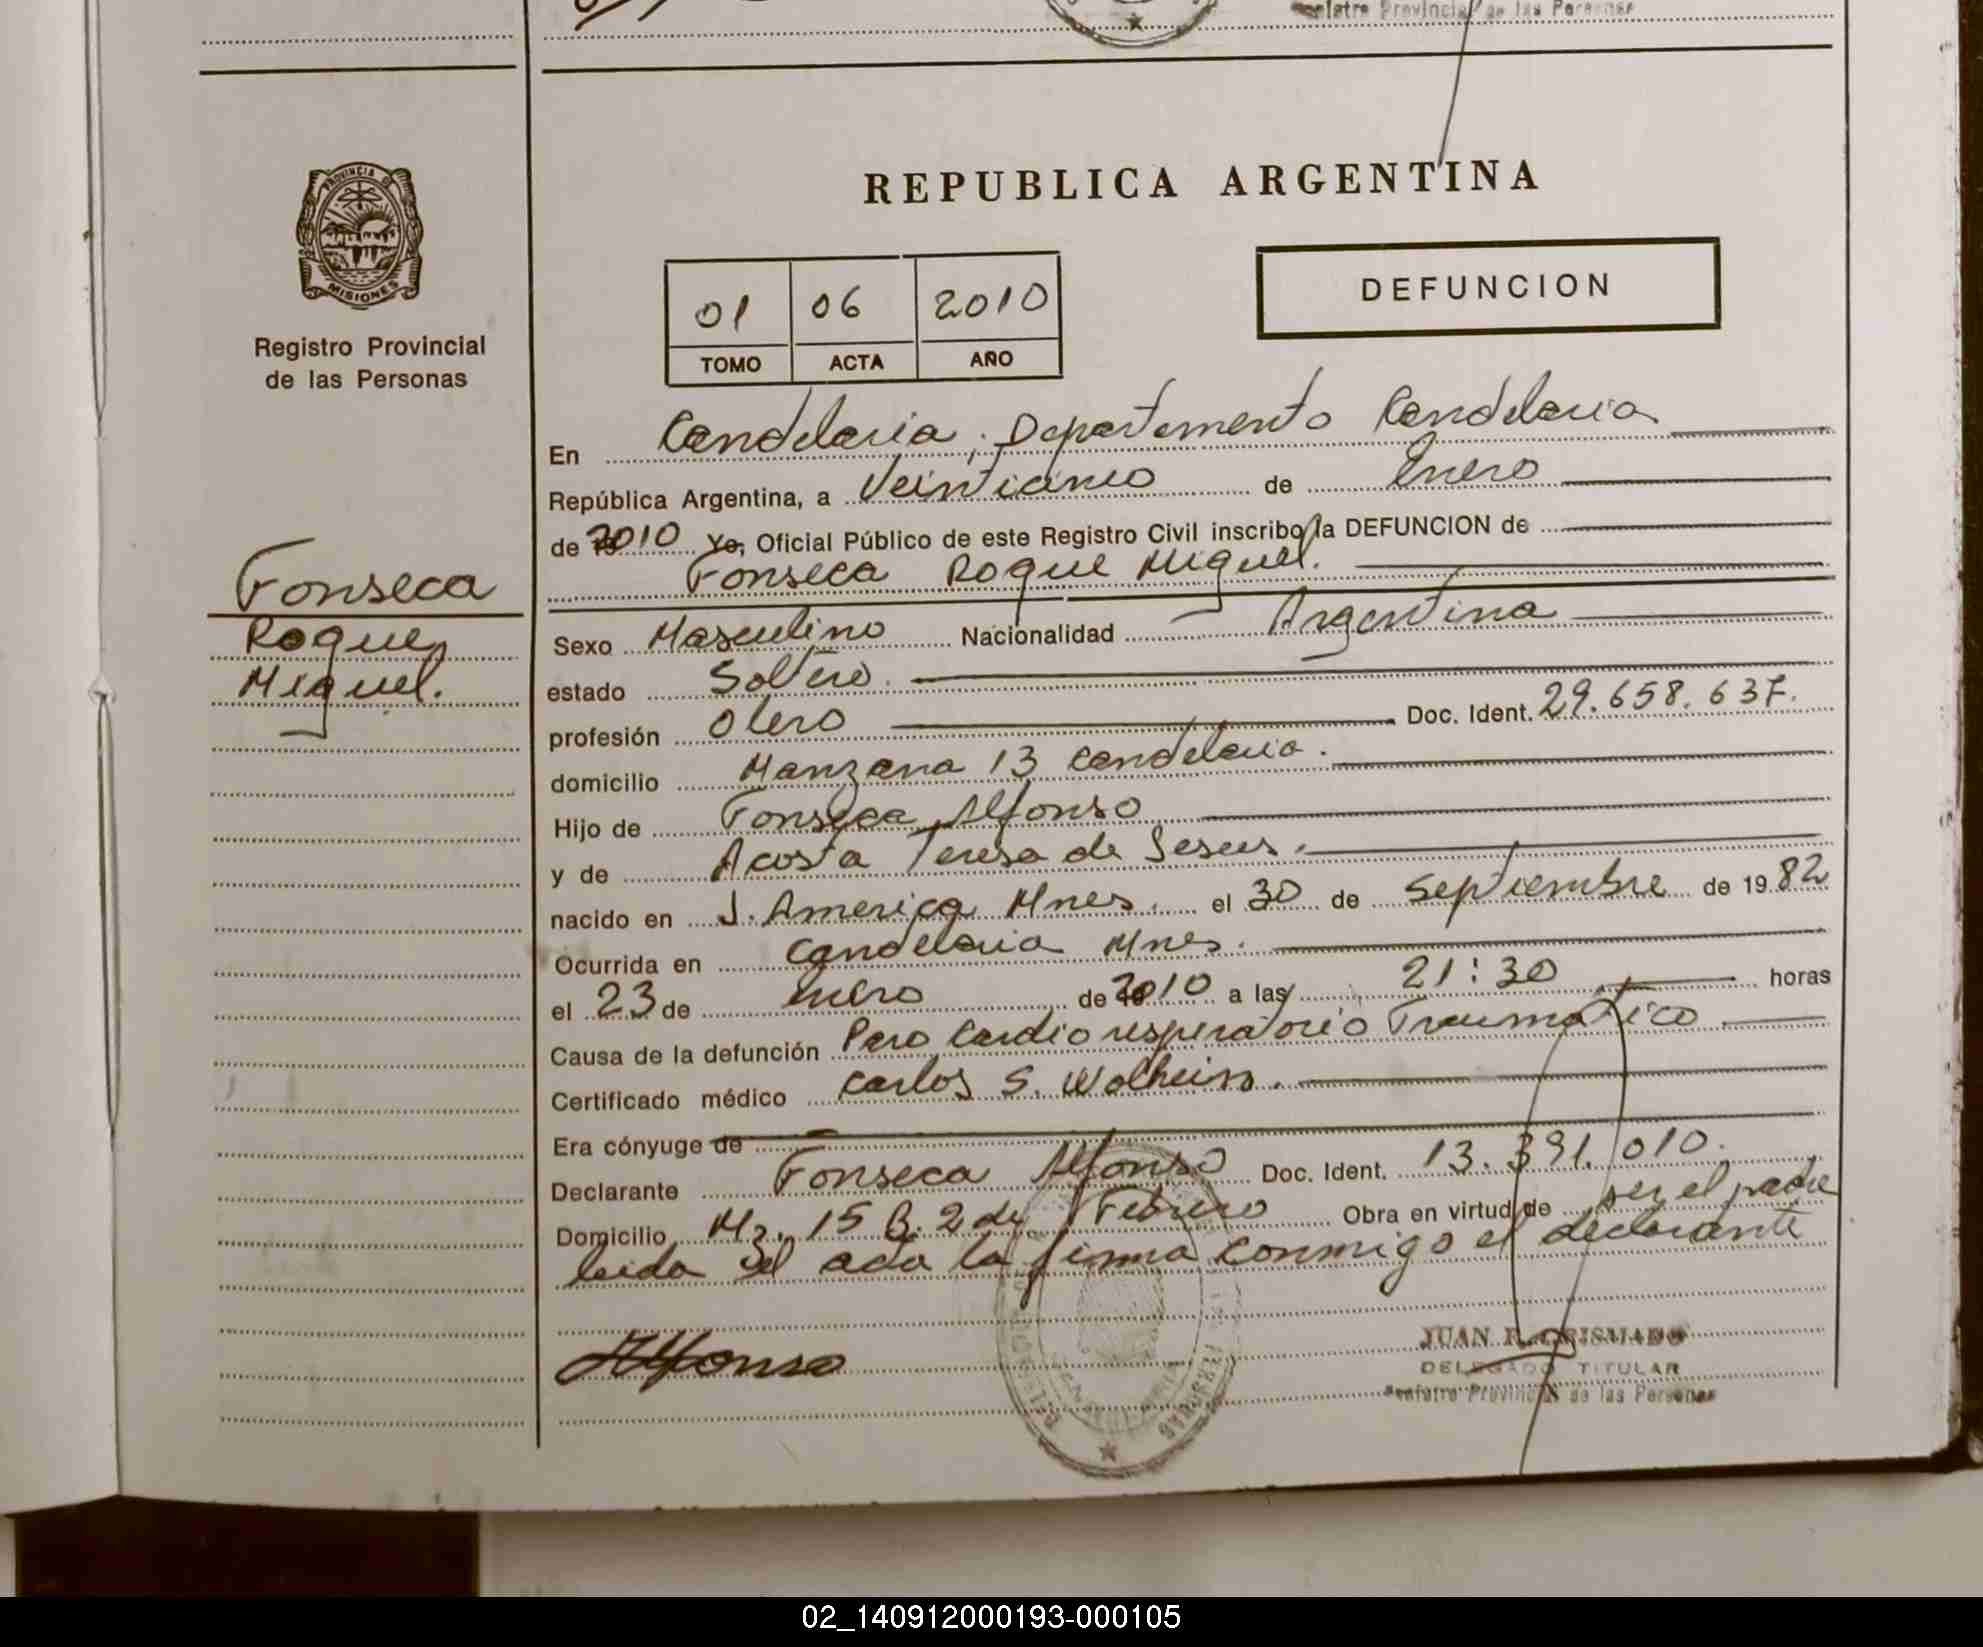 Registro Provincial de las Personas
REPUBLICA ARGENTINA
PROVINCIA DE
MISIONES
Registro Provincial
de las Personas
01 06 2010
TOMO ACTA AÑO
DEFUNCION
Fonseca
Roque
Miguel.
En Candelaria, Departamento Candelaria
República Argentina, a Veinticinco de Enero
de 2010 Yo, Oficial Público de este Registro Civil inscribo la DEFUNCION de
Fonseca Roque Miguel.
Sexo Masculino Nacionalidad Argentina
estado Soltero.
profesión Olero Doc. Ident. 29.658.637.
domicilio Manzana 13 Candelaria.
Hijo de Fonseca Alfonso
y de Acosta Teresa de Jesus.
nacido en J. America Mnes. el 30 de Septiembre de 1982
Ocurrida en Candelaria Mnes.
el 23 de Enero de 2010 a las 21:30 horas
Causa de la defunción Paro Cardio respiratorio Traumatico
Certificado médico Carlos S.
Era cónyuge de
Declarante Fonseca Alfonso Doc. Ident. 13.391.010.
Domicilio Mz. 15 B. 2 de Febrero Obra en virtud de ser el padre
leida el acta la firma conmigo el declarante
Alfonso
JUAN R. CRISMADO
DELEGADO TITULAR
Registro Provincial de las Personas
02_140912000193-000105